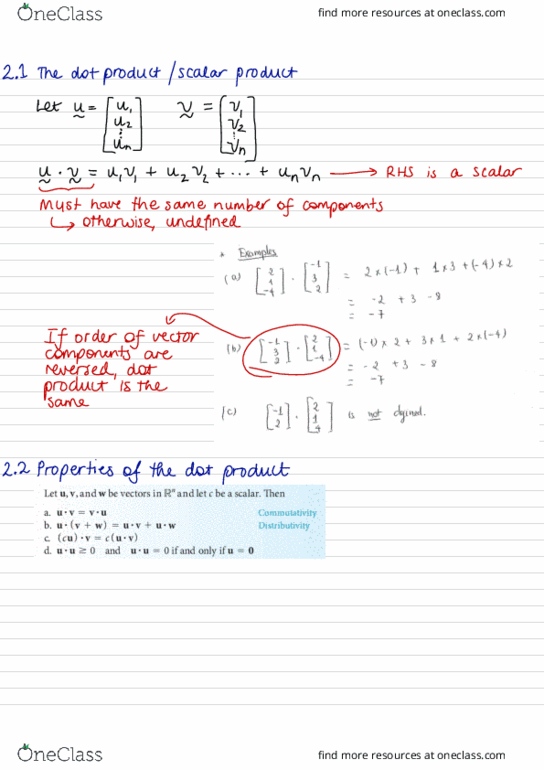 OneClass find more resources at oneclass.com
2.1 The dot product / scalar product
Let u = [u₁ u₂ ⋮ uₙ] v = [v₁ v₂ ⋮ vₙ]
u · v = u₁v₁ + u₂v₂ + ... + uₙvₙ → RHS is a scalar
Must have the same number of components
↳ otherwise, undefined
* Examples
(a) [2 1 -4] · [-1 3 2] = 2×(-1) + 1×3 + (-4)×2
= -2 + 3 - 8
= -7
If order of vector
components are
reversed, dot
product is the
same
(b) [-1 3 2] · [2 1 -4] = (-1)×2 + 3×1 + 2×(-4)
= -2 + 3 - 8
= -7
(c) [-1 2] · [2 1 4] is not defined.
2.2 Properties of the dot product
Let u, v, and w be vectors in ℝⁿ and let c be a scalar. Then
a. u · v = v · u Commutativity
b. u · (v + w) = u · v + u · w Distributivity
c. (cu) · v = c(u · v)
d. u · u ≥ 0 and u · u = 0 if and only if u = 0
OneClass find more resources at oneclass.com